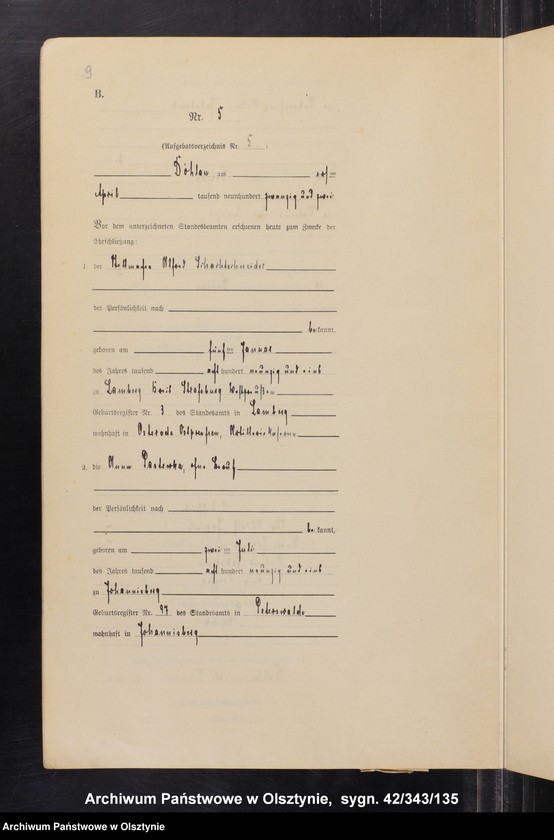 9
B.
Nr. 5
(Aufgebotsverzeichnis Nr. 5.)
Döhlau am
April tausend neunhundert zwanzig und zwei
Vor dem unterzeichneten Standesbeamten erschienen heute zum Zwecke der
Eheschließung:
1. der Alfred Schachtschneider
der Persönlichkeit nach
be kannt,
geboren am fünf ten Januar
des Jahres tausend acht hundert neunzig und eins
zu Lemberg Kreis Strasburg Westpreußen
Geburtsregister Nr. 3 des Standesamts in Lemberg
wohnhaft in Osterode Ostpreußen, Artilleriekaserne
2. die Anna , ohne Beruf
der Persönlichkeit nach
be kannt,
geboren am zwei ten Juli
des Jahres tausend acht hundert neunzig und eins
zu Johannisberg
Geburtsregister Nr. 27 des Standesamts in Peterswalde
wohnhaft in Johannisberg
Archiwum Państwowe w Olsztynie, sygn. 42/343/135
Archiwum Państwowe w Olsztynie